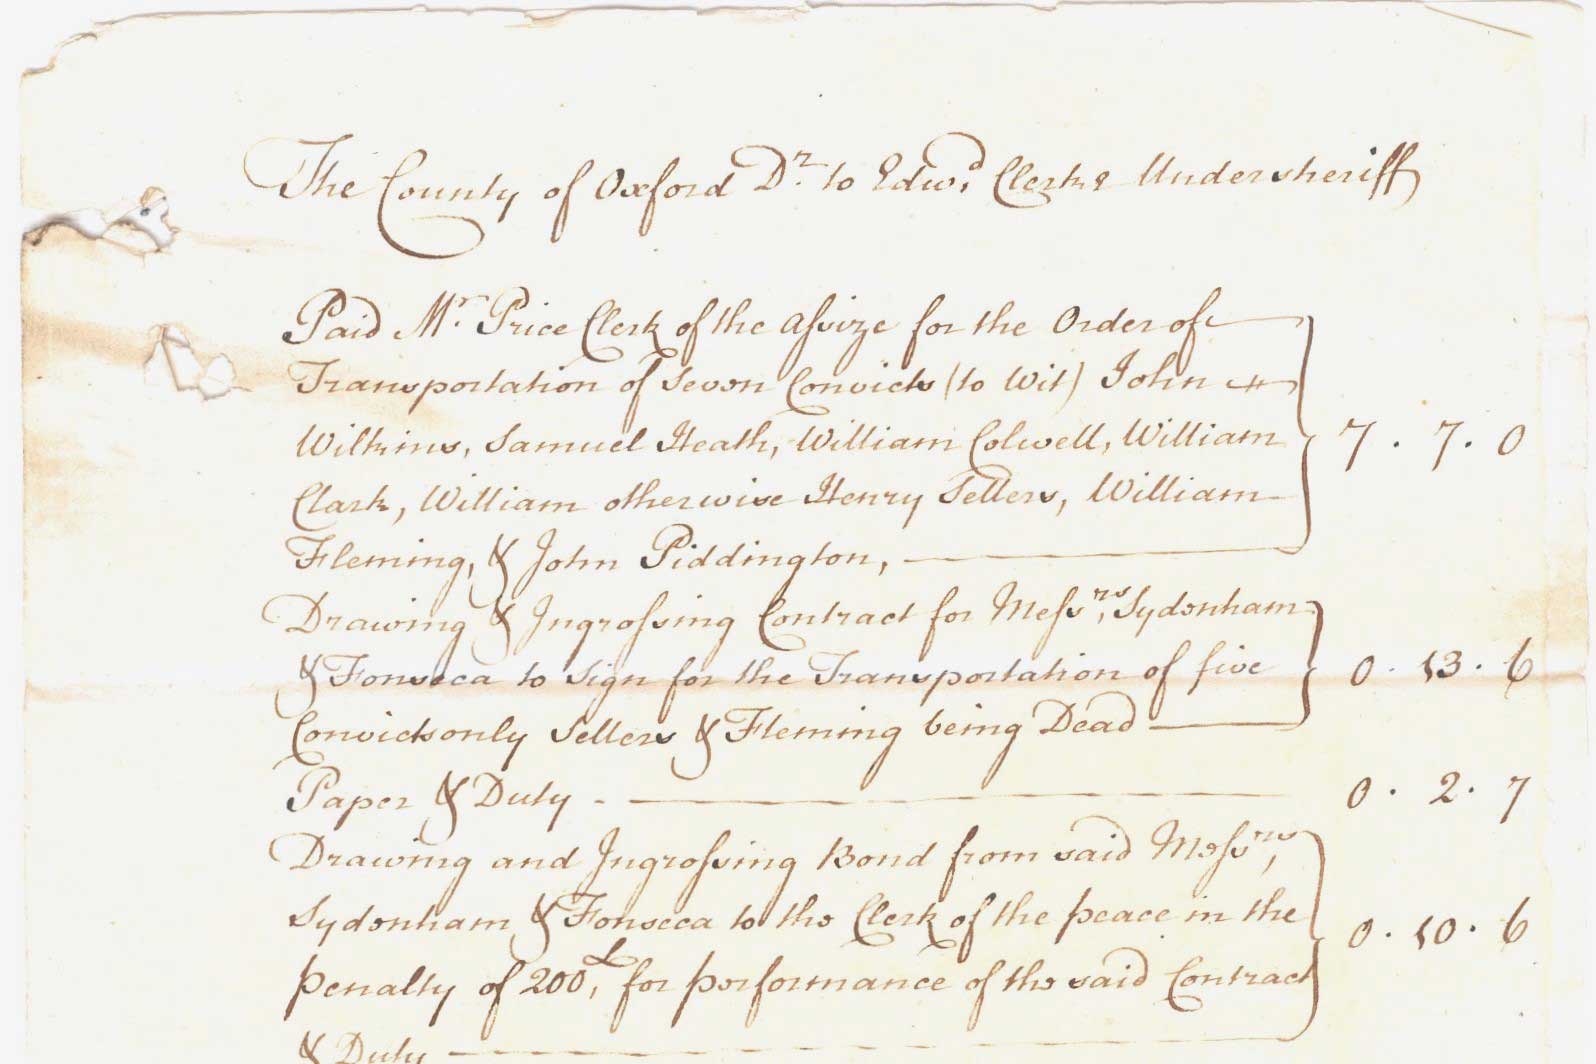 The County of Oxford Dr. to Edwd. Clerke Undersheriff
Paid Mr. Price Clerk of the Assize for the Order of
Transportation of Seven Convicts (to Wit) John
Wilkins, Samuel Heath, William Colwell, William 7 . 7 . 0
Clark, William otherwise Henry Sellers, William
Fleming, & John Piddington,
Drawing & Ingrossing Contract for Messrs. Sydenham
& Fonseca to Sign for the Transportation of five 0 . 13 . 6
Convicts only Sellers & Fleming being Dead
Paper & Duty 0 . 2 . 7
Drawing and Ingrossing Bond from said Messrs,
Sydenham & Fonseca to the Clerk of the peace in the 0 . 10 . 6
penalty of 200£, for performance of the said Contract
& Duty